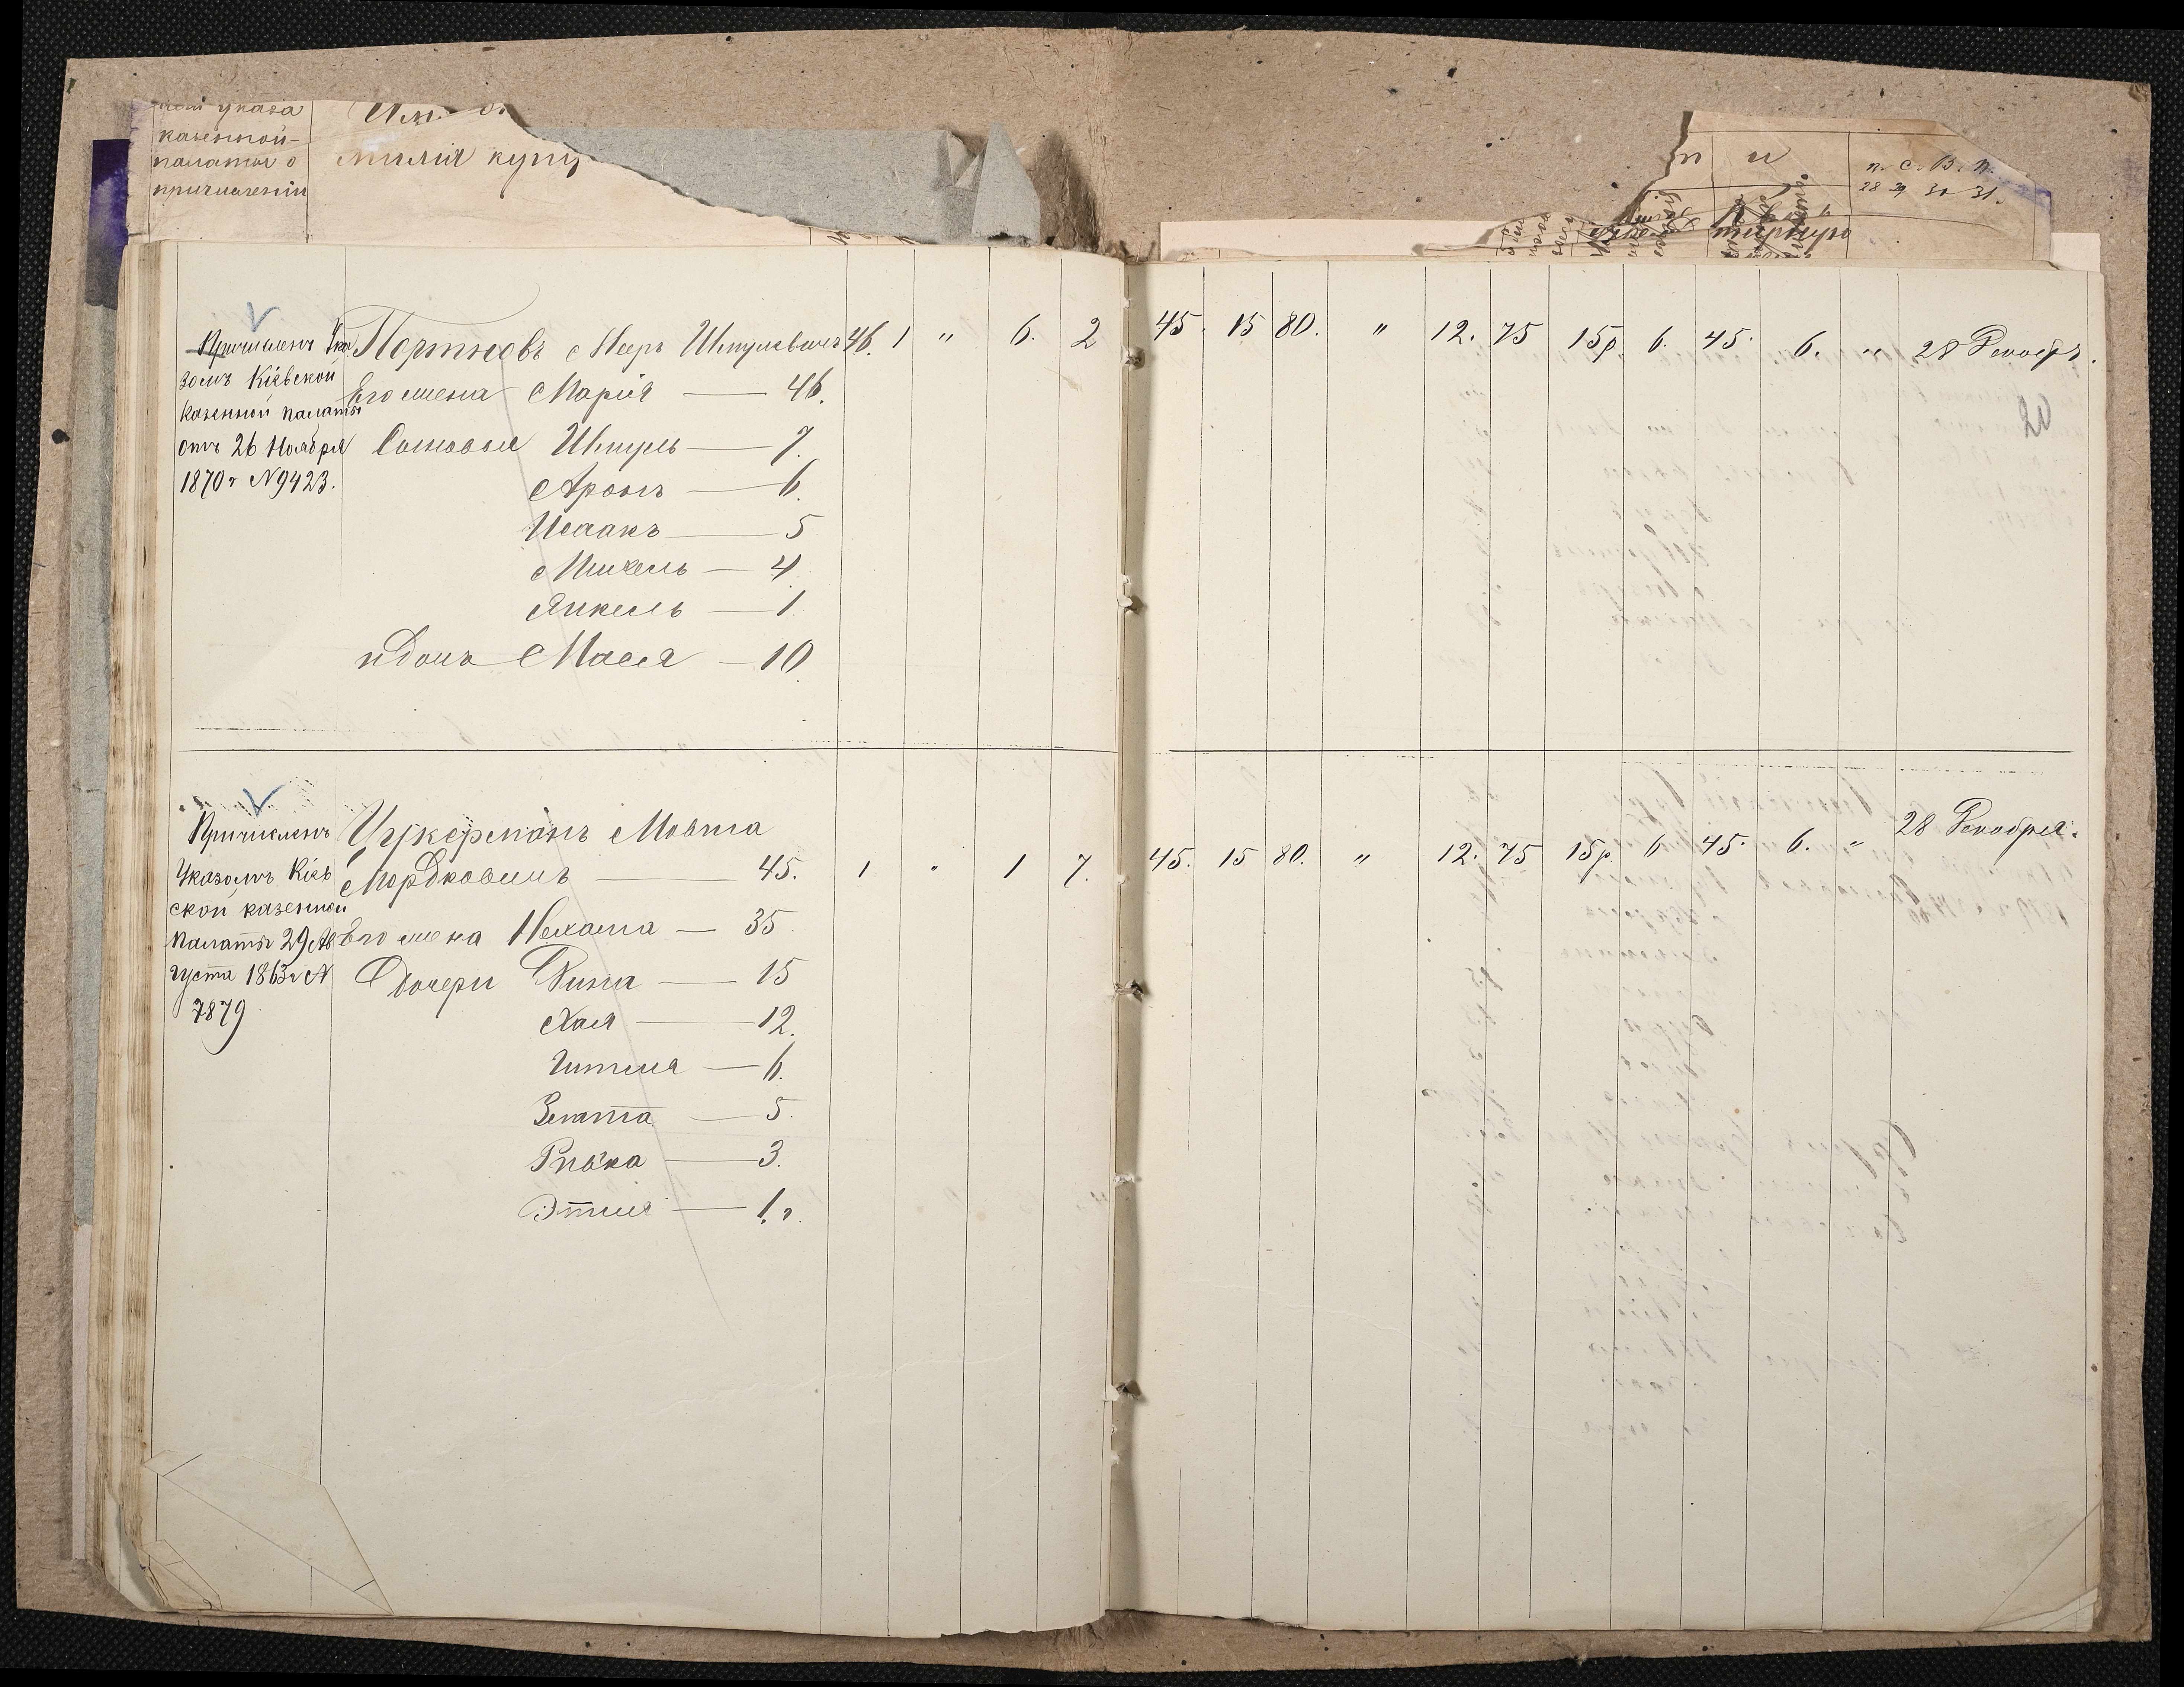 указа
казенной
палаты о
причислении
милія купц
п и
п. с. в. п.
28 29 30 31.
Причисленъ Ука
зомъ Кіевской
Казенной палаты
отъ 26 Ноября
1870 г №9423.
Портновъ Мееръ Шмулевичъ 46. 1 " 6. 2 45. 15 80. " 12. 75 15р. 6. 45. 6. " 28 Декабр.
Его жена Марія — 46.
Сыновья Шмуль — 7.
Аронъ — 6.
Исаакъ — 5
Михель — 4
Янкель — 1
и Дочь Мася — 10
20
Причисленъ
Указомъ Кіев
ской казенной
палаты 29 Ав
густа 1863 г №
7879
Цукерманъ Мотта
Мордковичъ — 45. 1 " 1 7. 45. 15 80. " 12. 75 15р. 6 45. 6. " 28 Декабря.
Его жена Нехама — 35
Дочери Дина — 15
Хая — 12.
Гитля — 6.
Злата — 5.
Ривка — 3.
Этля — 1 г.